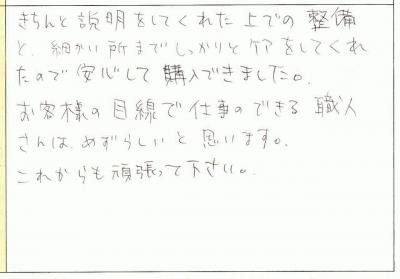 きちんと説明をしてくれた上での整備
と、細かい所までしっかりとケアをしてくれ
たので安心して購入できました。
お客様の目線で仕事のできる職人
さんは、めずらしいと思います。
これからも頑張って下さい。